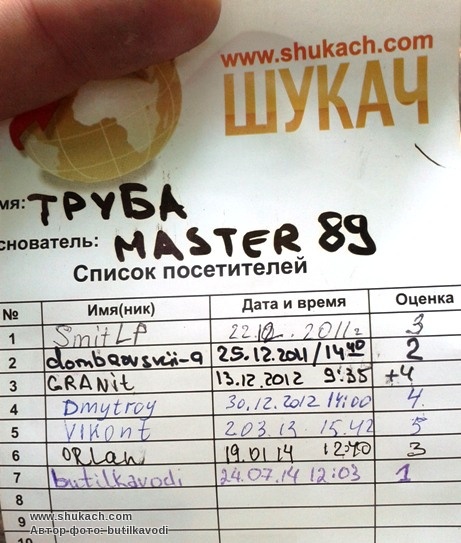 www.shukach.com
ШУКАЧ
мя: ТРУБА
снователь: MASTER 89
Список посетителей
№ Имя(ник) Дата и время Оценка
1 SmitLP 22.12.2011г 3
2 dombrovskii-a 25.12.2011/14:40 2
3 GRANit 13.12.2012 9:35 +4
4 Dmytroy 30.12.2012 14:00 4.
5 VIKont 203.13 15.42 5
6 ORLan 19.01.14 12:40 3
7 butilkavodi 24.07.14 12:03 1
8
9
10
www.shukach.com
Автор фото: butilkavodi